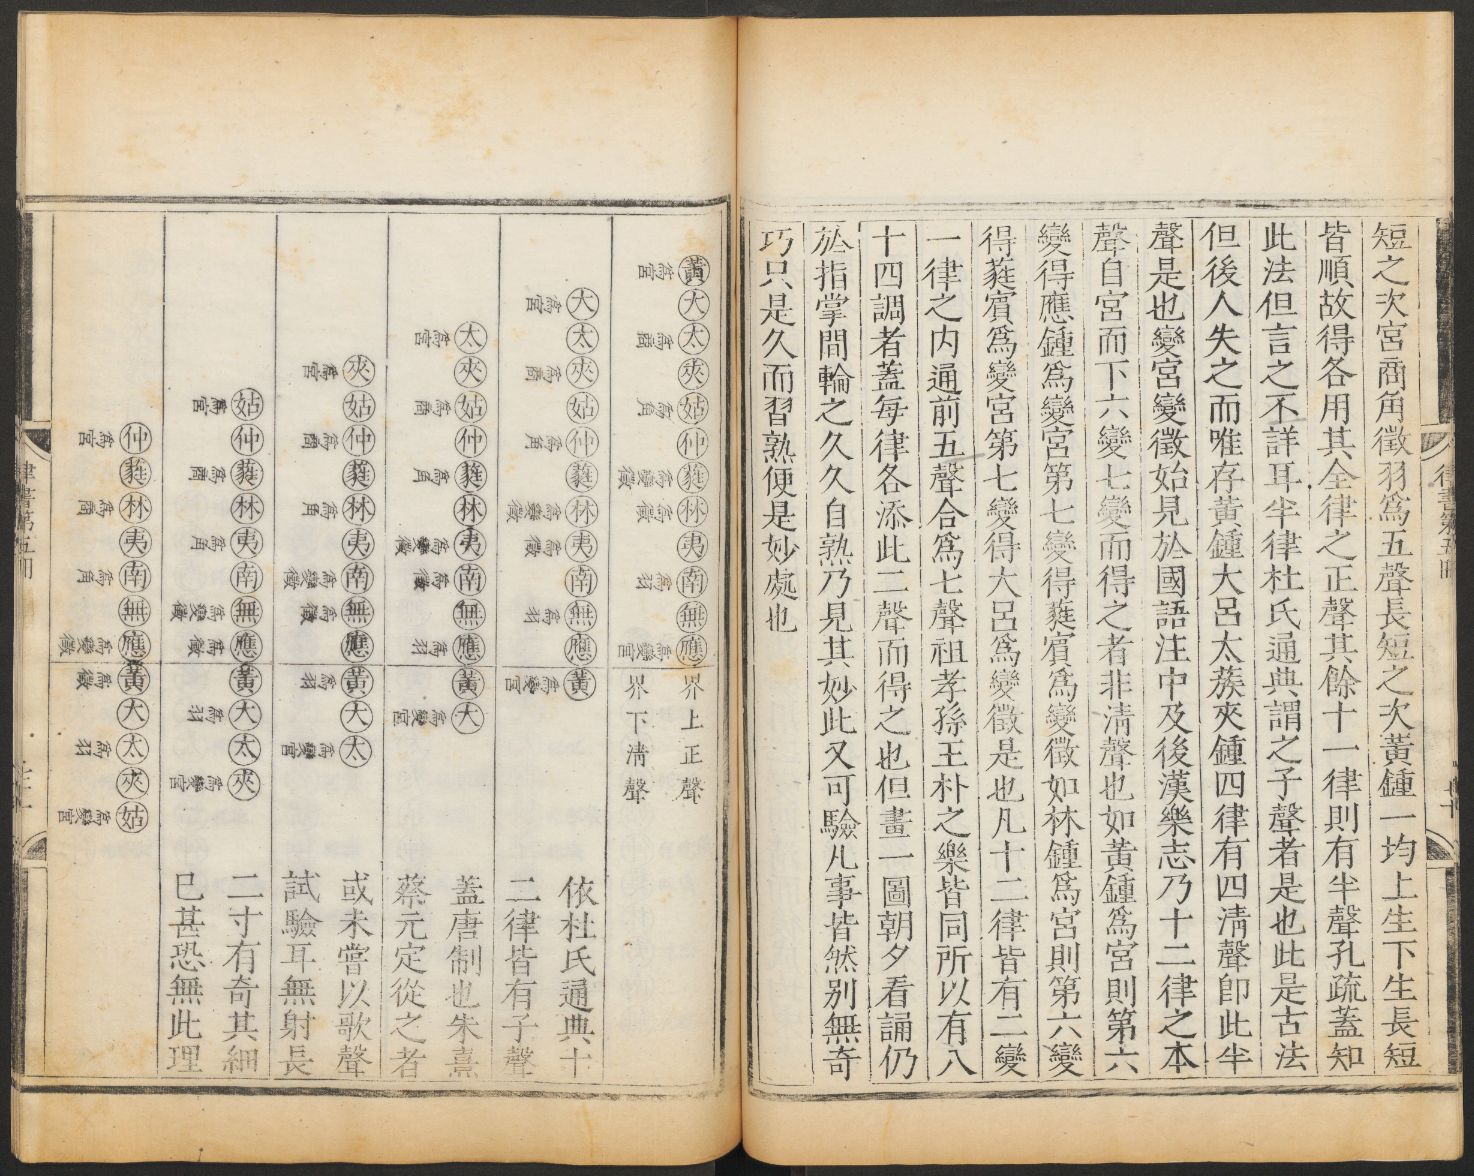 短之次宮商角徵羽爲五聲長短之次黃鍾一均上生下生長短
皆順故得各用其全律之正聲其餘十一律則有半聲孔疏蓋知
此法但言之不詳耳半律杜氏通典謂之子聲者是也此是古法
但後人失之而唯存黃鍾大呂太蔟夾鍾四律有四淸聲卽此半
聲是也變宮變徵始見於國語注中及後漢樂志乃十二律之本
聲自宮而下六變七變而得之者非淸聲也如黃鍾爲宮則第六
變得應鍾爲變宮第七變得蕤賓爲變徵如林鍾爲宮則第六變
得蕤賓爲變宮第七變得大呂爲變徵是也凡十二律皆有二變
一律之内通前五聲合爲七聲祖孝孫王朴之樂皆同所以有八
十四調者蓋每律各添此二聲而得之也但畫一圖朝夕看誦仍
於指掌間輪之久久自熟乃見其妙此又可驗凡事皆然别無奇
巧只是久而習熟便是妙處也
黃大太夾姑仲蕤林夷南無應
爲宮 爲商 爲角 爲變徵 爲徵 爲羽 爲變宮
界上正聲
界下淸聲
大太夾姑仲蕤林夷南無應黃
爲宮 爲商 爲角 爲變徵 爲徵 爲羽 爲變宮
太夾姑仲蕤林夷南無應黃大
爲宮 爲商 爲角 爲變徵 爲徵 爲羽 爲變宮
夾姑仲蕤林夷南無應黃大太
爲宮 爲商 爲角 爲變徵 爲徵 爲羽 爲變宮
姑仲蕤林夷南無應黃大太夾
爲宮 爲商 爲角 爲變徵 爲徵 爲羽 爲變宮
仲蕤林夷南無應黃大太夾姑
爲宮 爲商 爲角 爲變徵 爲徵 爲羽 爲變宮
依杜氏通典十
二律皆有子聲
蓋唐制也朱熹
蔡元定從之者
或未嘗以歌聲
試驗耳無射長
二寸有奇其細
已甚恐無此理
律書第五